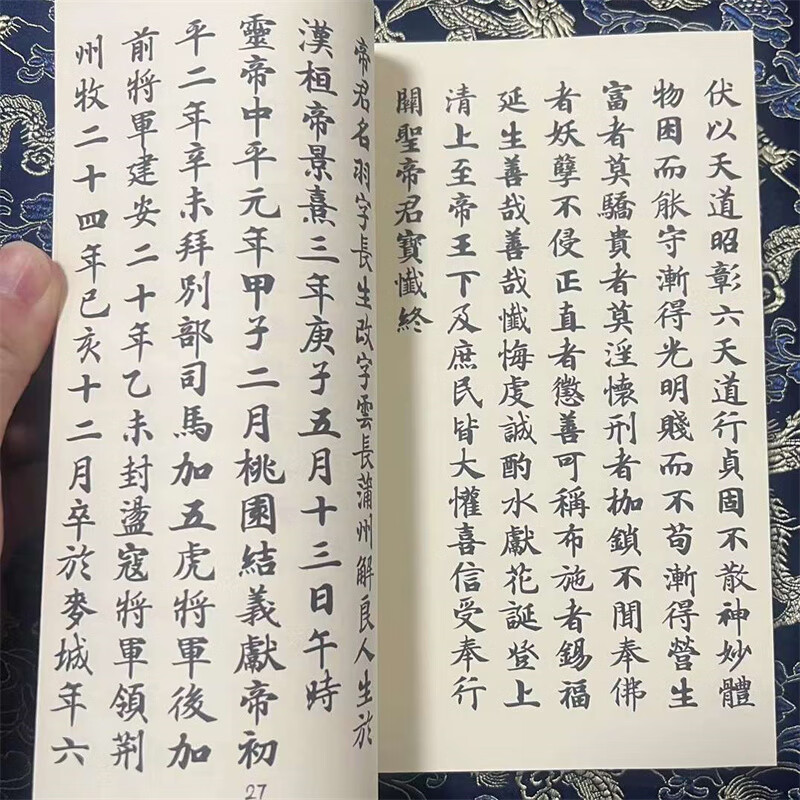 伏以天道昭彰六天道行貞固不散神妙體
物困而能守漸得光明賤而不苟漸得營生
富者莫驕貴者莫淫懷刑者枷鎖不聞奉佛
者妖孽不侵正直者懲善可稱布施者錫福
延生善哉善哉懺悔虔誠酌水獻花誕登上
清上至帝王下及庶民皆大懽喜信受奉行
關聖帝君寶懺終
帝君名羽字長生改字雲長蒲州解良人生於
漢桓帝景熹三年庚子五月十三日午時
靈帝中平元年甲子二月桃園結義獻帝初
平二年卒未拜別部司馬加五虎將軍後加
前將軍建安二十年乙未封盪寇將軍領荊
州牧二十四年己亥十二月卒於麥城年六
27